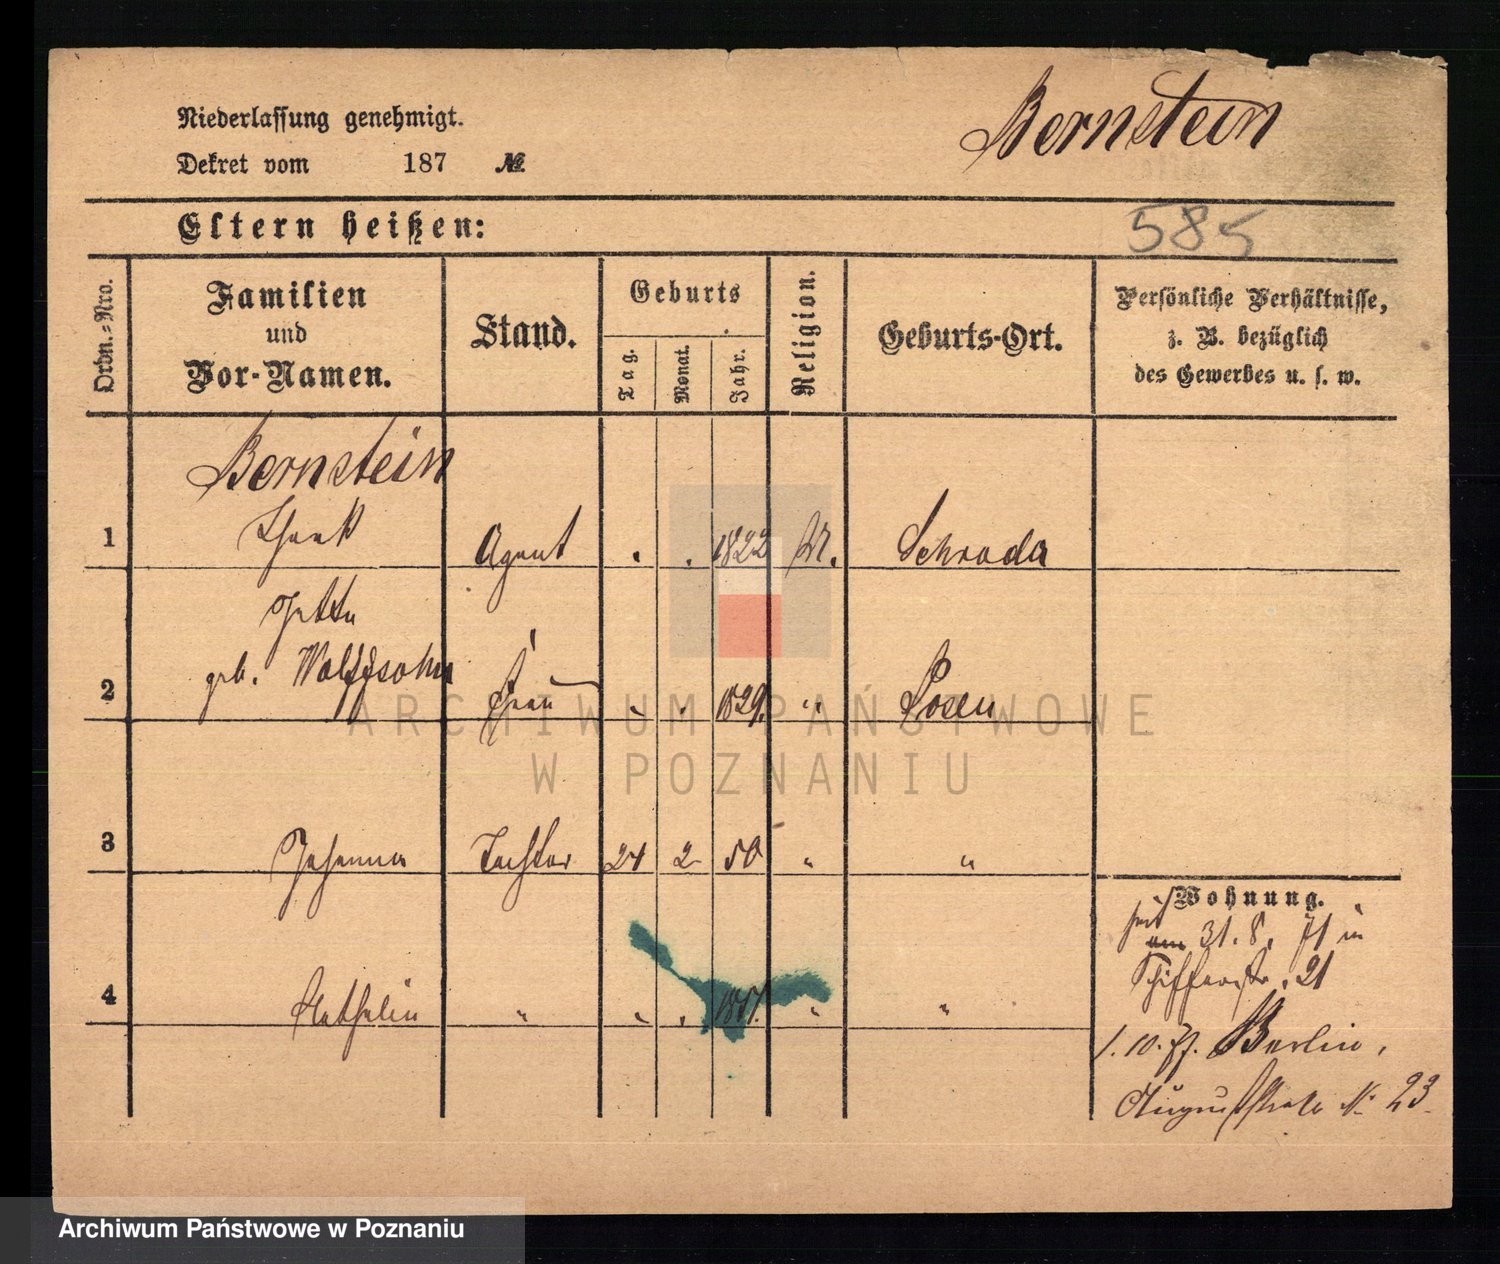 Niederlassung genehmigt.
Bernstein
Dekret vom 187 №
Eltern heißen:
585
Ordn.-Nro.
Familien
und
Vor-Namen.
Stand.
Geburts
Tag.
Monat.
Jahr.
Religion.
Geburts-Ort.
Persönliche Verhältnisse,
z. B. bezüglich
des Gewerbes u. s. w.
Bernstein
1 Agent . . 1822 M. Schroda
Jette
geb. Wolffsohn
2 Frau . . 1829. " Posen
3 Johanna Tochter 24 2 50 " "
Wohnung.
seit
am 31. 8. 71 in
Schifferstr. 21
4 " . . " "
1. 10. 77. Berlin,
Auguststraße № 23
ARCHIWUM PAŃSTWOWE
W POZNANIU
Archiwum Państwowe w Poznaniu